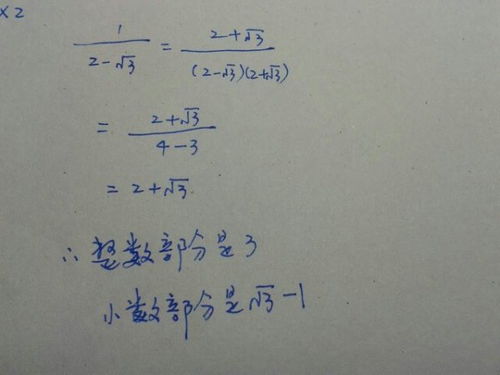 ×2
1/(2-√3) = (2+√3)/((2-√3)(2+√3))
= (2+√3)/(4-3)
= 2+√3
∴ 整数部分是3
小数部分是√3-1